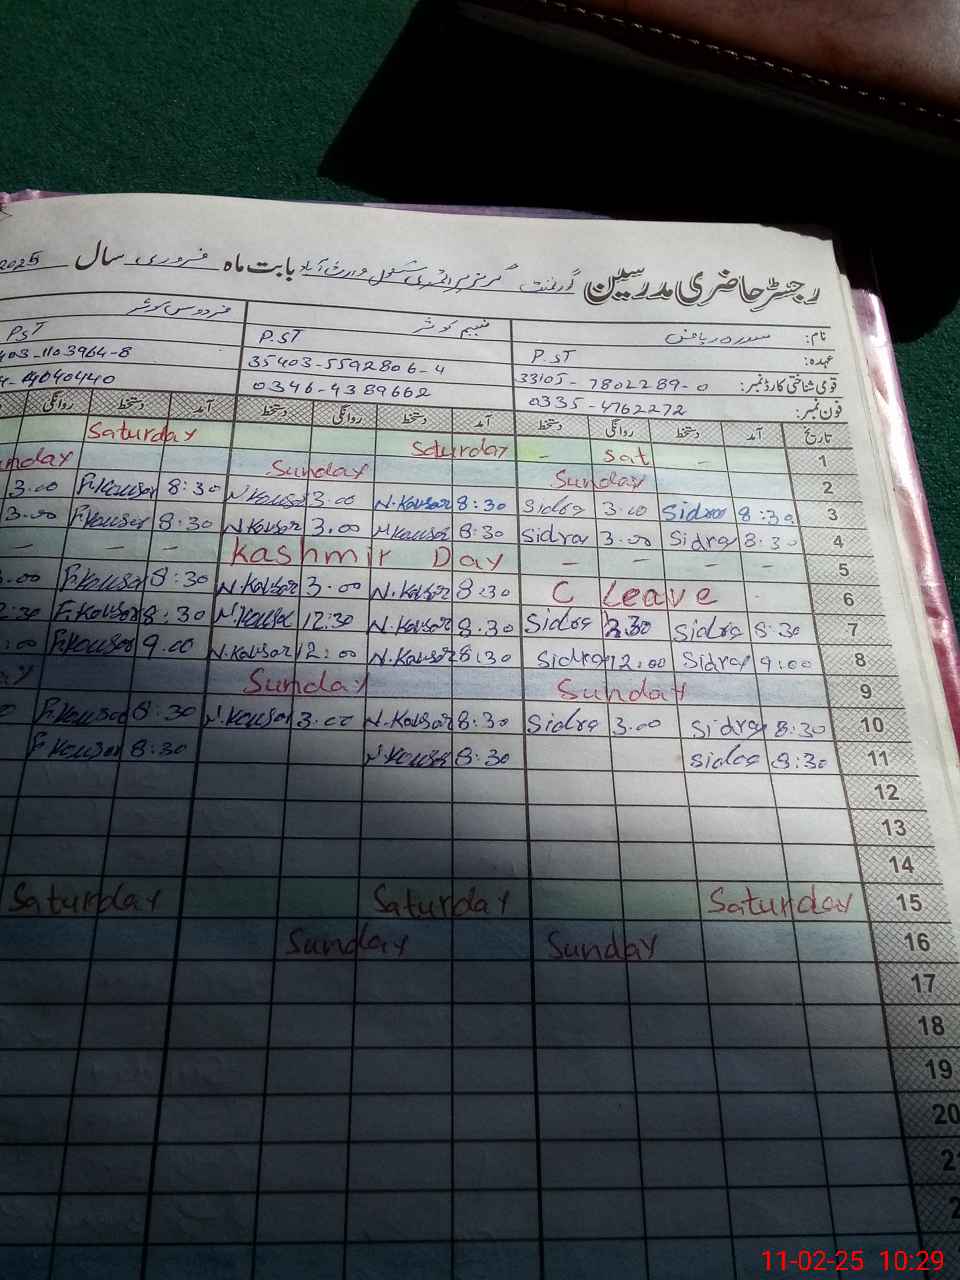 رجسٹر حاضری مدرسین گورنمنٹ گرلز پرائمری سکول وارث آباد بابت ماہ فروری سال 2025
نام: سدرہ ریاض نسیم کوثر فردوس کوثر
عہدہ: P.ST P.ST P.ST
قومی شناختی کارڈ نمبر: 33105-7802289-0 35403-5592806-4 403-1103964-8
فون نمبر: 0335-4762272 0346-4389662 4040440
تاریخ آمد دستخط روانگی دستخط آمد دستخط روانگی دستخط آمد دستخط روانگی
1 - sat - Saturday Saturday
2 Sunday Sunday unday
3 8:30 Sidra 3.00 Sidra 8:30 N.Kausar 3.00 N.Kausar 8:30 F.Kausar 3.00
4 8:30 Sidra 3.00 Sidra 8:30 N.Kausar 3.00 N.Kausar 8:30 F.Kausar 3.00
5 - - - - Kashmir Day - - -
6 C Leave 8:30 N.Kausar 3.00 N.Kausar 8:30 F.Kausar .00
7 8:30 Sidra Sidra 8:30 N.Kausar 12:30 N.Kausar 8:30 F.Kausar 2:30
8 9:00 Sidra 12:00 Sidra 8:30 N.Kausar 12:00 N.Kausar 9.00 F.Kausar :00
9 Sunday Sunday ay
10 8:30 Sidra 3.00 Sidra 8:30 N.Kausar 3.00 N.Kausar 8:30 F.Kausar 0
11 8:30 Sidra 8:30 N.Kausar 8:30 F.Kausar
12
13
14
15 Saturday Saturday Saturday
16 Sunday Sunday
17
18
19
20
2
2
11-02-25 10:29